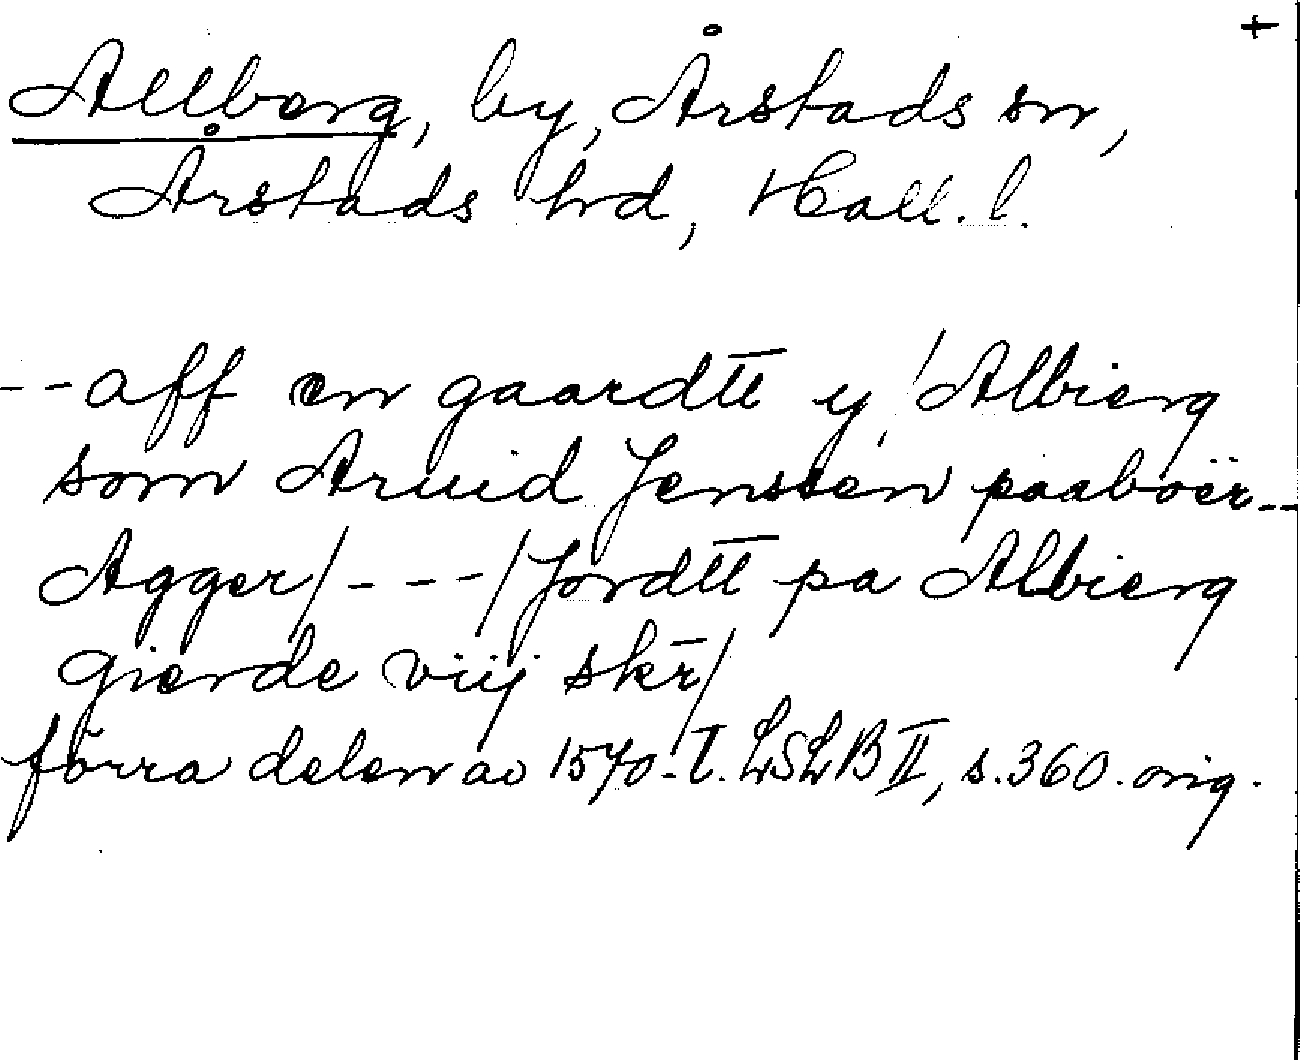 +
Allberg, by, Årstads sn,
Årstads hrd, Hall. l.
--aff en gaardtt y / Albierg
som Aruid Jenssen paaboër--
Agger/---/Jordtt pa Albierg
gierde viij skr/
förra delen av 1570-t. LSLB II, s. 360. orig.